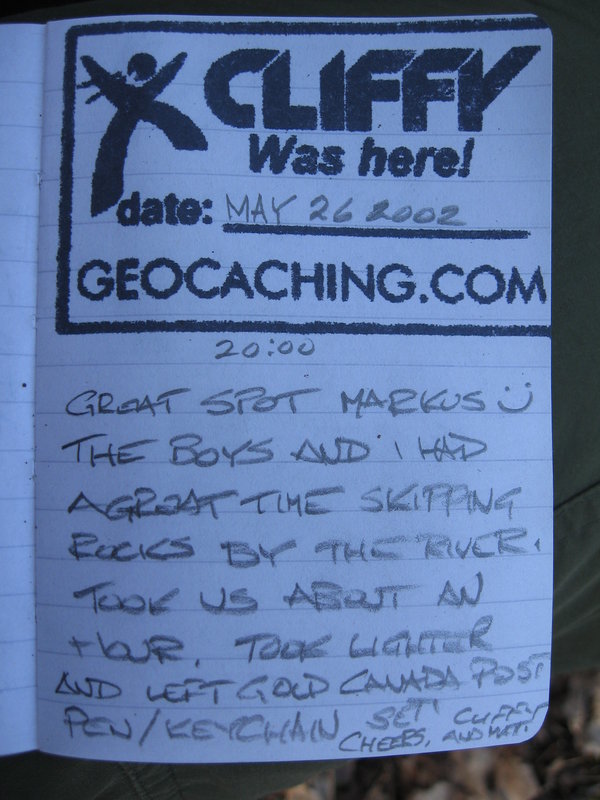 CLIFFY
Was here!
date: MAY 26 2002
GEOCACHING.COM
20:00
GREAT SPOT MARKUS
THE BOYS AND I HAD
A GREAT TIME SKIPPING
ROCKS BY THE RIVER.
TOOK US ABOUT AN
HOUR. TOOK LIGHTER
AND LEFT GOLD CANADA POST
PEN/KEYCHAIN SET!
CHEERS, CLIFFY AND MATT.